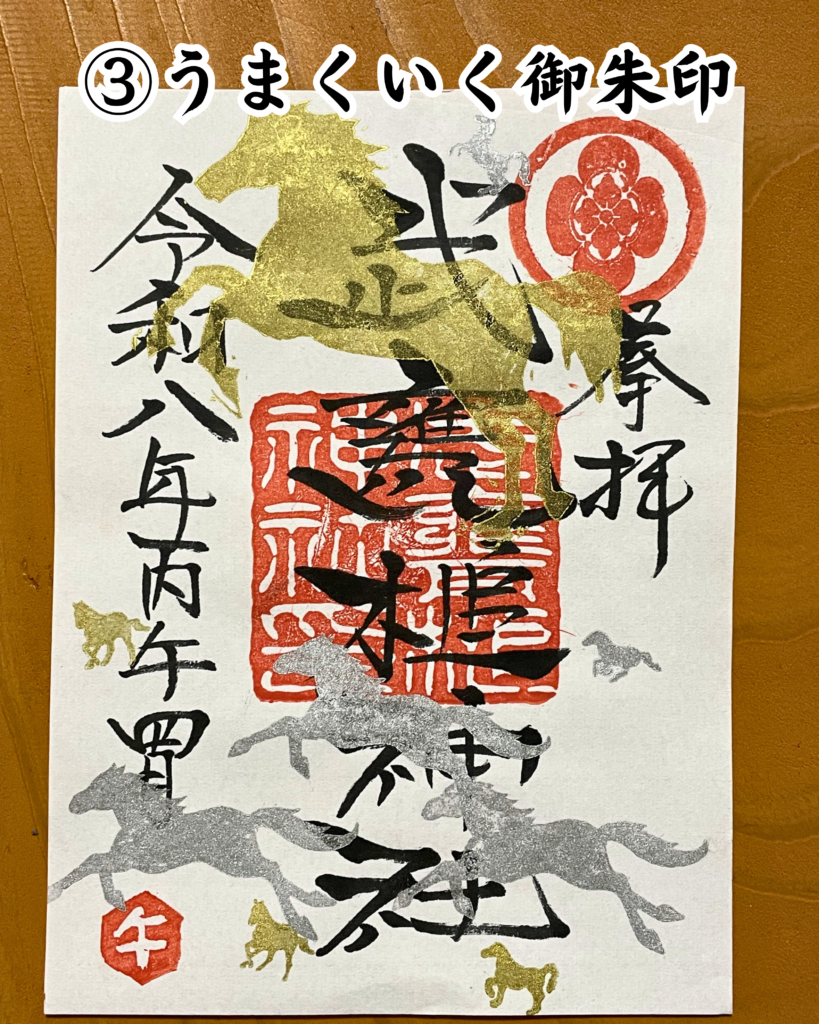 ③うまくいく御朱印
奉拝
武甕槌神社
令和八年丙午四月
午